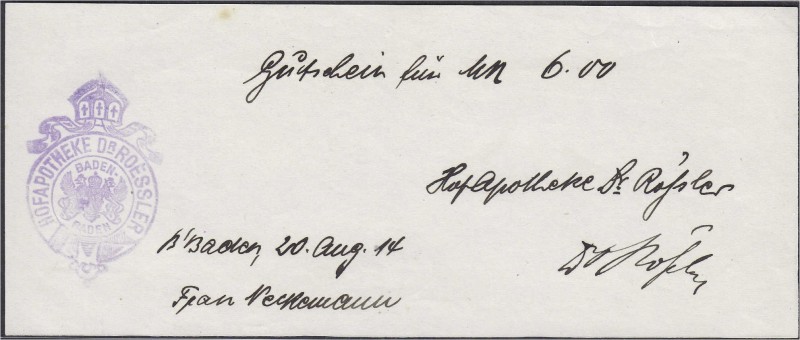 Gutschein für Mk 6.00
HOFAPOTHEKE DR ROESSLER
BADEN-
BADEN
Hofapotheke Dr Rößler
B'Baden, 20. Aug. 14
Dr Rößler
Frau Neckemann